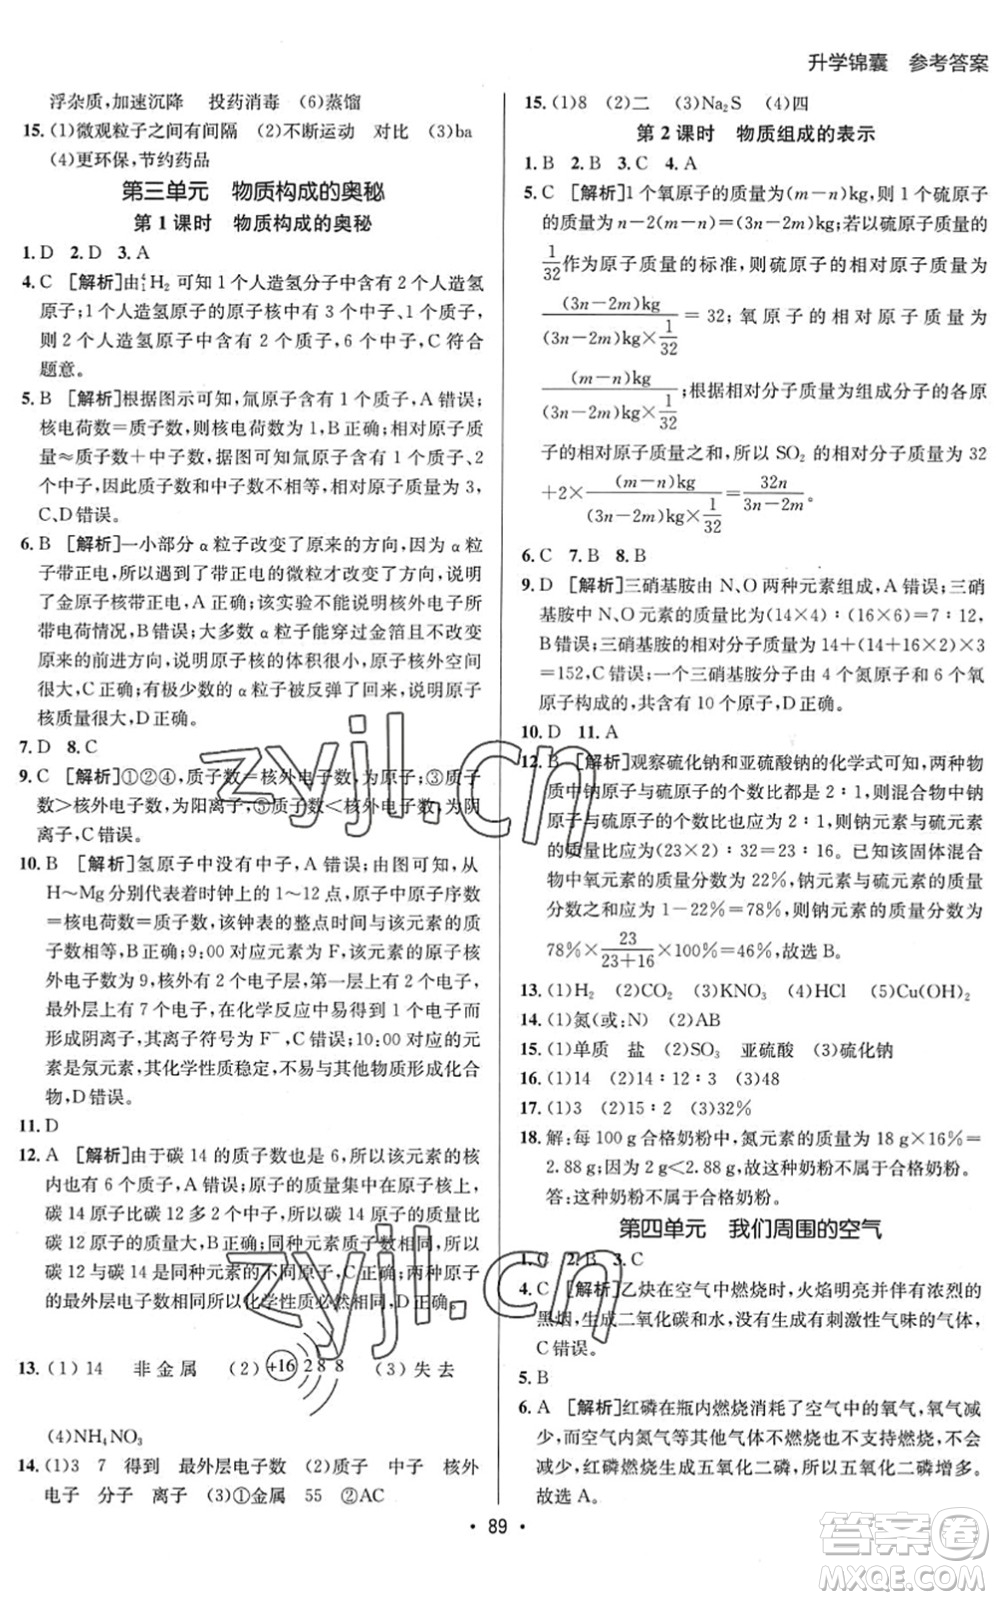 升学锦囊　参考答案
浮杂质,加速沉降　投药消毒　(6)蒸馏
15. (1)微观粒子之间有间隔　(2)不断运动　对比　(3)ba
(4)更环保,节约药品
第三单元　物质构成的奥秘
第 1 课时　物质构成的奥秘
1. D　2. D　3. A
4. C　[解析]由⁴₁H₂ 可知 1 个人造氢分子中含有 2 个人造氢
原子;1 个人造氢原子的原子核中含有 3 个中子、1 个质子,
则 2 个人造氢原子中含有 2 个质子,6 个中子,C 符合
题意。
5. B　[解析]根据图示可知,氚原子含有 1 个质子,A 错误;
核电荷数=质子数,则核电荷数为 1,B 正确;相对原子质
量≈质子数+中子数,根据图示可知氚原子含有 1 个质子、2
个中子,因此质子数和中子数不相等,相对原子质量为 3,
C、D 错误。
6. B　[解析]一小部分 α 粒子改变了原来的方向,因为 α 粒
子带正电,所以遇到了带正电的微粒才改变了方向,说明
了金原子核带正电,A 正确;该实验不能说明原子核外电子
所带电荷数,B 错误;大多数 α 粒子能穿过金箔且不改变
原来的前进方向,说明原子核的体积很小,原子核外空间
很大,C 正确;有极少数的 α 粒子被反弹了回来,说明原子
核质量很大,D 正确。
7. D　8. C
9. C　[解析]①②④,质子数=核外电子数,为原子;③质子
数>核外电子数,为阳离子;⑤质子数<核外电子数,为阴
离子,C 错误。
10. B　[解析]氢原子中没有中子,A 错误;由图可知,从
H～Mg 分别代表着时钟上的 1～12 点,原子中原子序数
=核电荷数=质子数,该钟表的整点时间与该元素的质
子数相等,B 正确;9:00 对应元素为 F,该元素的原子核
电荷数为 9,核外有 2 个电子层,第一层上有 2 个电子,
最外层上有 7 个电子,在化学反应中易得到 1 个电子而
形成阴离子,其离子符号为 F⁻,C 错误;10:00 对应的元
素是氖元素,化学性质稳定,不易与其他物质形成化合
物,D 错误。
11. D
12. A　[解析]由于碳 14 的质子数也是 6,所以该元素的核
内也含有 6 个质子,A 错误;原子的质量集中在原子核上,
碳 14 原子比碳 12 原子多 2 个中子,故碳 14 原子比碳
12 原子的质量大,B 正确;碳 14 和碳 12 质子数相同,故
碳 14 与碳 12 是同种元素的不同原子,C 正确;由于原子
的最外层电子数相同所以化学性质必然相同,D 正确。
13. (1)14　非金属　(2)　+16 2 8 8　(3)失去
(4)NH₄NO₃
14. (1)3　7　得到　最外层电子数　(2)质子　中子　核外
电子　分子　离子　(3)①金属　55　②AC
15. (1)8　(2)二　(3)Na₂S　(4)四
第 2 课时　物质组成的表示
1. B　2. B　3. C　4. A
5. C　[解析]1 个氧原子的质量为(m－n)kg,则 1 个硫原子
的质量为 n－2(m－n)=(3n－2m)kg;若以硫原子质量的
1/32 作为原子质量的标准,则硫原子的相对原子质量为
(3n－2m)kg/((3n－2m)kg×1/32)=32;氧原子的相对原子质量为
(m－n)kg/((3n－2m)kg×1/32);根据相对分子质量为组成分子的各原
子的相对原子质量之和,所以 SO₂ 的相对分子质量为 32
+2×(m－n)kg/((3n－2m)kg×1/32)=32n/(3n－2m)。
6. C　7. B　8. B
9. D　[解析]三硝基胺由 N、O 两种元素组成,A 错误;三硝
基胺中 N、O 元素的质量比为(14×4)∶(16×6)=7∶12,
B 错误;三硝基胺的相对分子质量为 14+(14+16×2)×3
=152,C 错误;一个三硝基胺分子由 4 个氮原子和 6 个氧
原子构成的,共含有 10 个原子,D 正确。
10. D　11. A
12. B　[解析]观察硫化钠和亚硫酸钠的化学式可知,两种物
质中钠原子与硫原子的个数比都是 2∶1,则混合物中钠
原子与硫原子的个数比也应为 2∶1,钠元素与硫元素的
质量比为(23×2)∶32=23∶16。已知该固体混合物
中氧元素的质量分数为 22%,钠元素与硫元素的质量
分数之和应为 1－22%=78%,则钠元素的质量分数为
78%×23/(23+16)×100%=46%,故选 B。
13. (1)H₂　(2)CO₂　(3)KNO₃　(4)HCl　(5)Cu(OH)₂
14. (1)氮(或:N)　(2)AB
15. (1)单质　盐　(2)SO₃　亚硫酸　(3)硫化钠
16. (1)14　(2)14∶12∶3　(3)48
17. (1)3　(2)15∶2　(3)32%
18. 解:每 100 g 合格奶粉中,氮元素的质量为 18 g×16%=
2.88 g;因为 2 g<2.88 g,故这种奶粉不属于合格奶粉。
答:这种奶粉不属于合格奶粉。
第四单元　我们周围的空气
1. C　2. B　3. C
4. C　[解析]乙炔在空气中燃烧时,火焰明亮并伴有浓烈的
黑烟,生成二氧化碳和水,没有生成有刺激性气味的气体,
C 错误。
5. B
6. A　[解析]红磷在瓶内燃烧消耗了空气中的氧气,氧气减
少,而空气内氮气等大多数气体不燃烧也不支持燃烧,所以
燃烧时,红磷燃烧生成五氧化二磷,所以五氧化二磷增加。
故选 A。
· 89 ·
zyjl.cn
zyjl.cn
答案圈
MXQE.COM